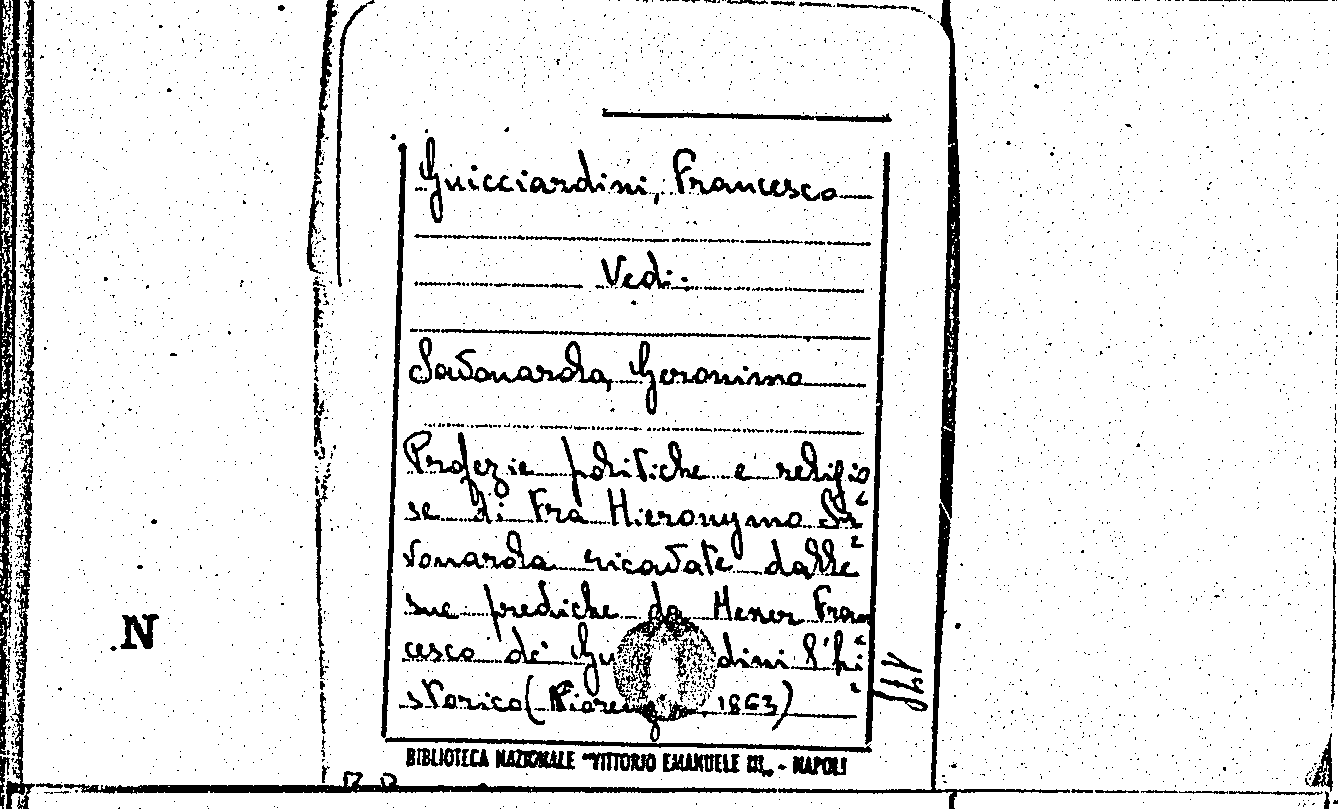 Guicciardini, Francesco
Vedi:
Savonarola, Geronimo
Profezie politiche e religio
se di Fra Hieronymo Sa
vonarola ricavate dalle
sue prediche da Messer Fran
cesco de' Gu dini l'hi
storico (Fiorenza 1863)
N
BIBLIOTECA NAZIONALE "VITTORIO EMANUELE III„ - NAPOLI